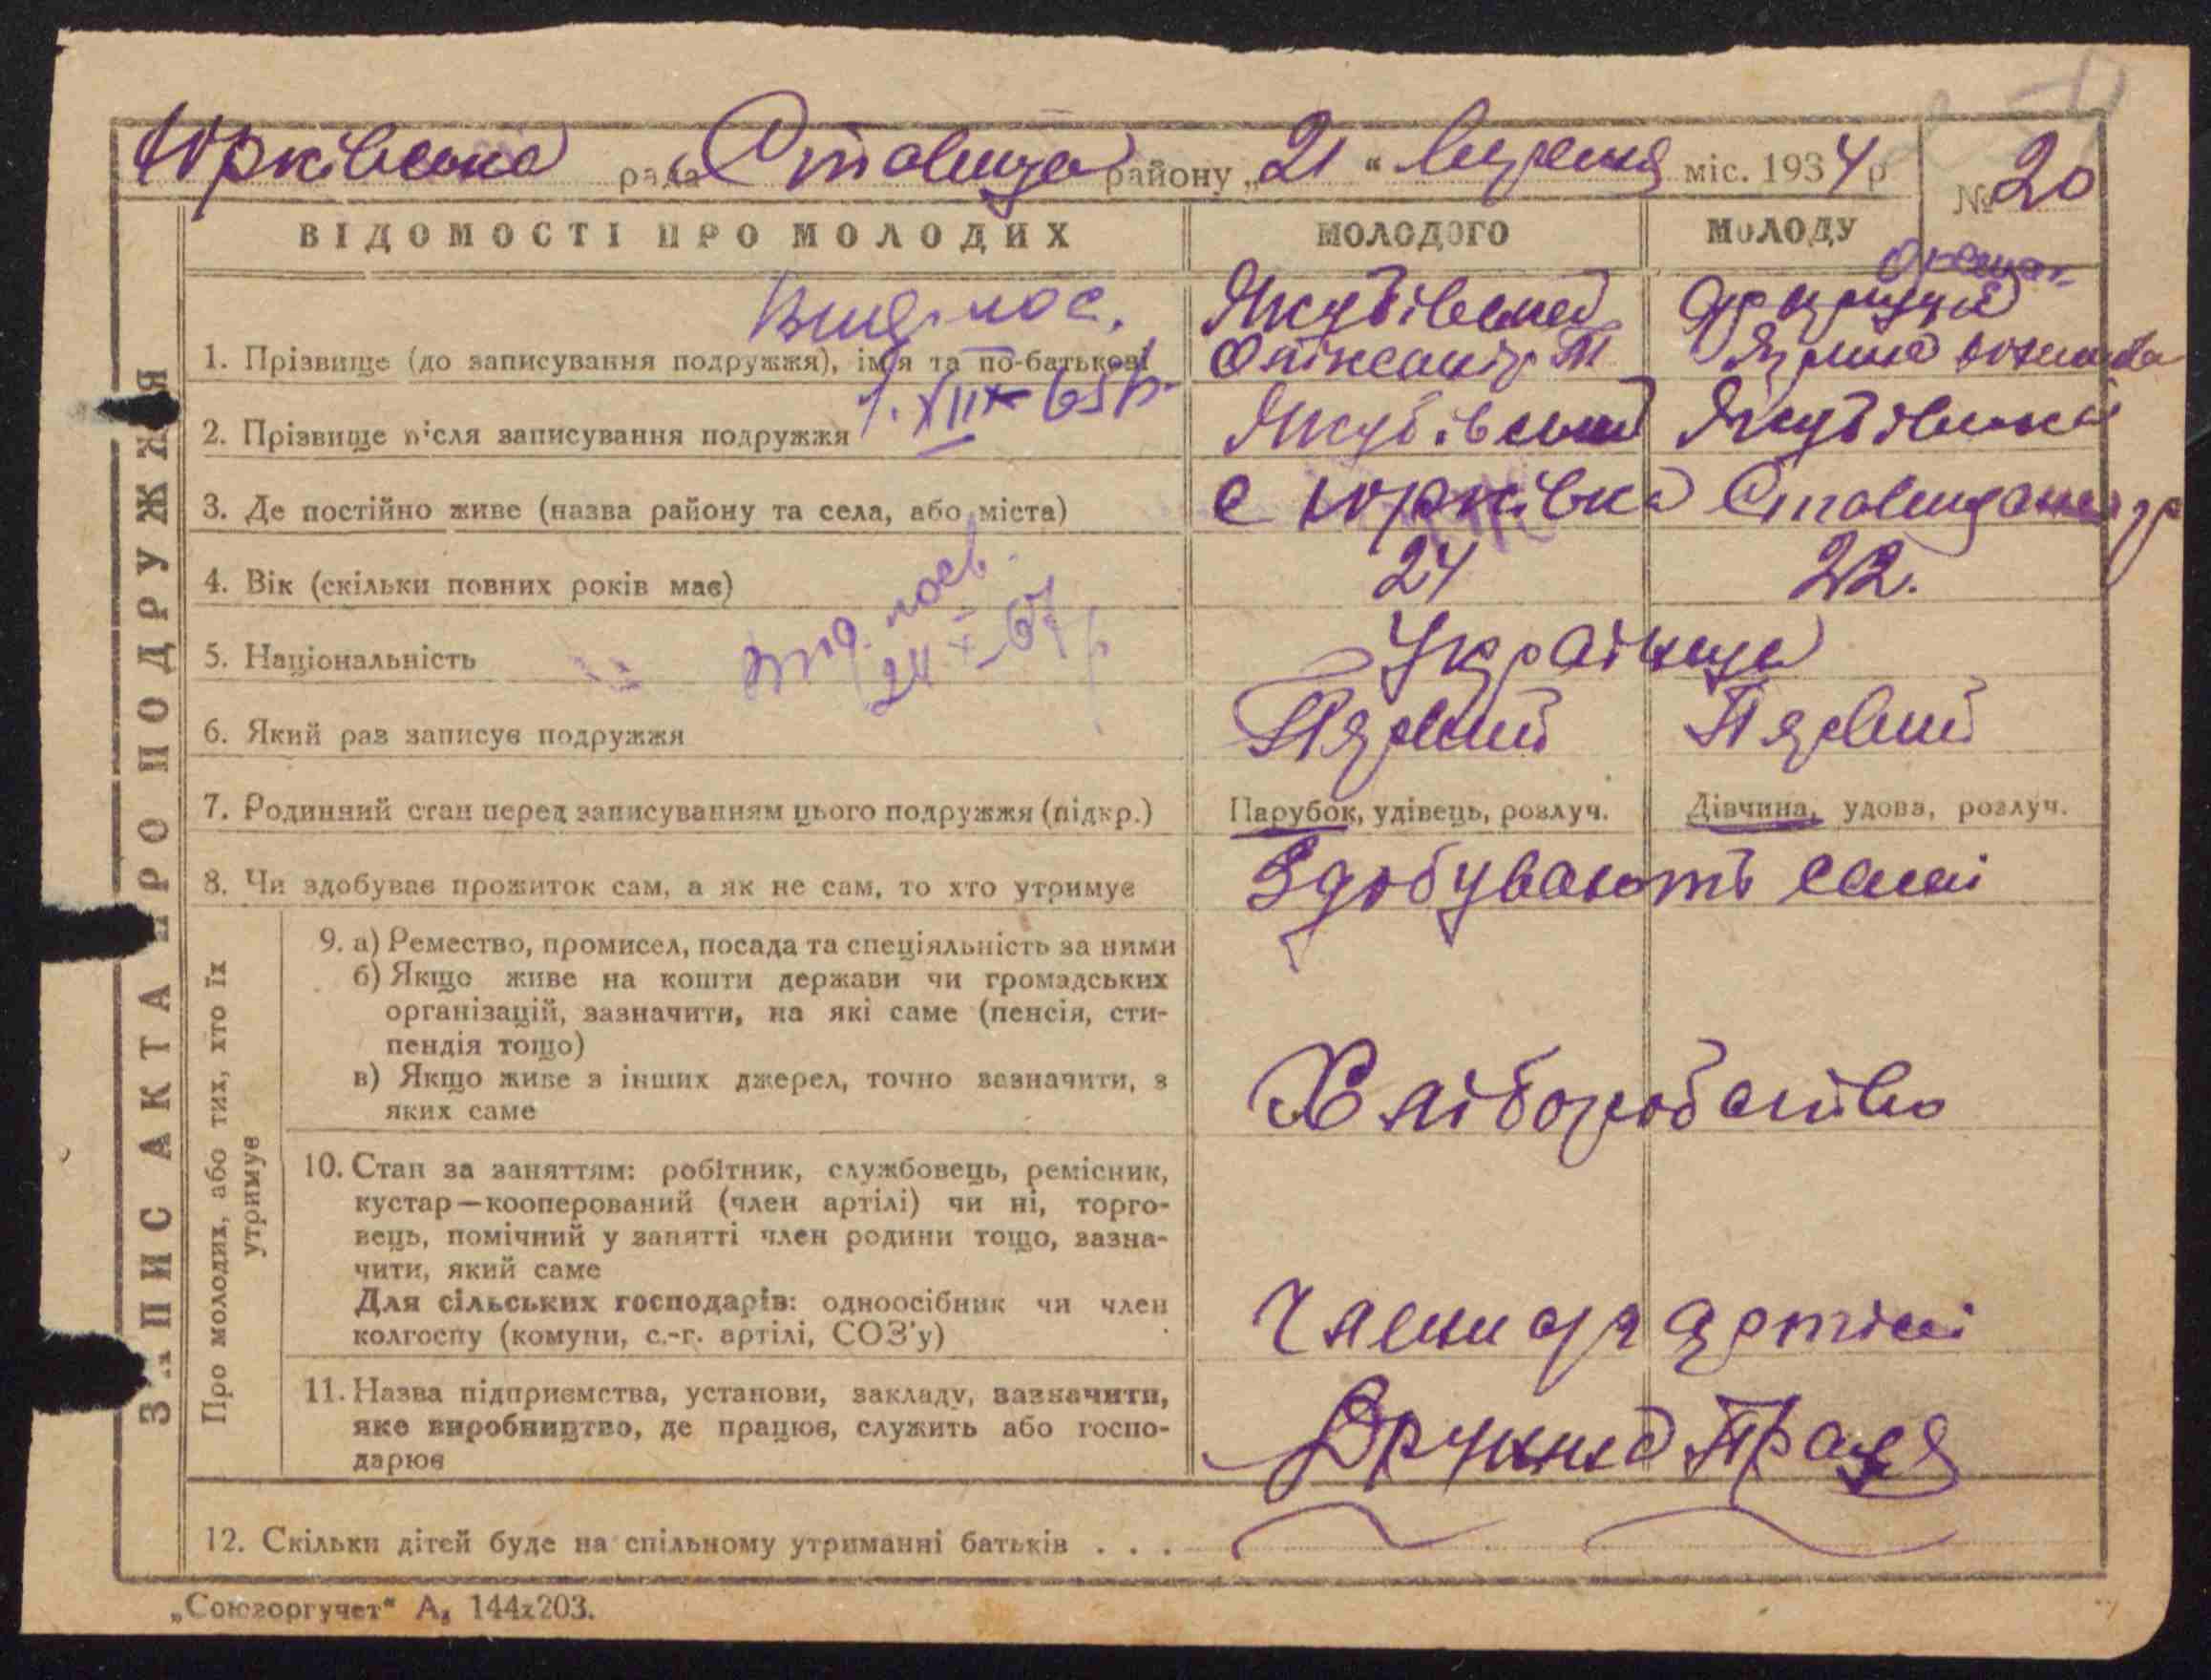 Юрківська рада Ставище району „21“ березня міс. 1934 р № 20
ВІДОМОСТІ ПРО МОЛОДИХ МОЛОДОГО МОЛОДУ
1. Прізвище (до записування подружжя), ім'я та по-батькові
Якубівський
Олександр
Вид. пос.
1. XII 65 р.
2. Прізвище після записування подружжя Якубівський Якубівська
3. Де постійно живе (назва району та села, або міста) с Юрківка
4. Вік (скільки повних років має) 24 22.
5. Національність Українці
Вид. посв.
24 X–67 р
6. Який раз записує подружжя Перший Перший
7. Родинний стан перед записуванням цього подружжя (підкр.) Парубок, удівець, розлуч. Дівчина, удова, розлуч.
8. Чи здобуває прожиток сам, а як не сам, то хто утримує Здобувають самі
9. а) Ремество, промисел, посада та спеціяльність за ними
б) Якщо живе на кошти держави чи громадських
організацій, зазначити, на які саме (пенсія, сти-
пендія тощо)
в) Якщо живе з інших джерел, точно зазначити, з
яких саме
Хліборобство
10. Стан за заняттям: робітник, службовець, ремісник,
кустар—кооперований (член артілі) чи ні, торго-
вець, помічний у занятті член родини тощо, зазна-
чити, який саме
Для сільських господарів: одноосібник чи член
колгоспу (комуни, с.-г. артілі, СОЗ'у)
артілі
11. Назва підприємства, установи, закладу, зазначити,
яке виробництво, де працює, служить або госпо-
дарює
Дружна Праця
12. Скільки дітей буде на спільному утриманні батьків . . .
ЗАПИС АКТА ПРО ПОДРУЖЖЯ
Про молодих, або тих, хто їх
утримує
„Союзоргучет“ А₅ 144х203.